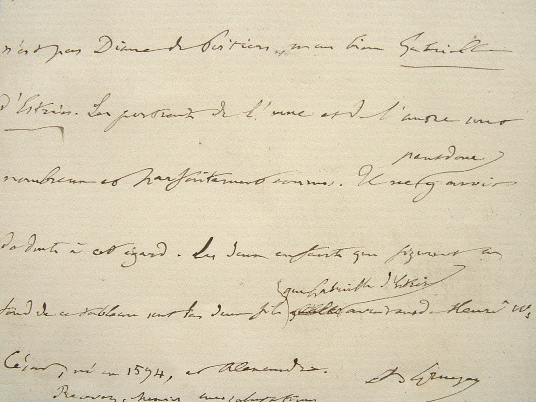 n'est pas Diane de Poitiers, mais bien Gabrielle
d'Estrées. Les portraits de l'une et de l'autre sont
peut donc
nombreux et parfaitement connus. Il ne y avoir
de doute à cet égard. Les deux enfants qui figurent au
que Gabrielle d'Estrées
fond de ce tableau sont les deux fils avait eus de Henri IV,
César, né en 1594, et Alexandre.
Recevez, salutations